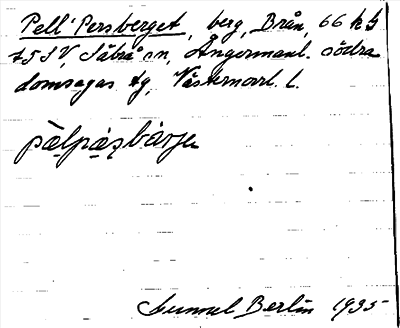 Pell'Persberget, berg, Brån, 66 h 4
45 SV, Säbrå sn, Ångermanl. södra
domsagas tg, Västernorrl. l.
pälpäsbärje
Gunnel Berlin 1935